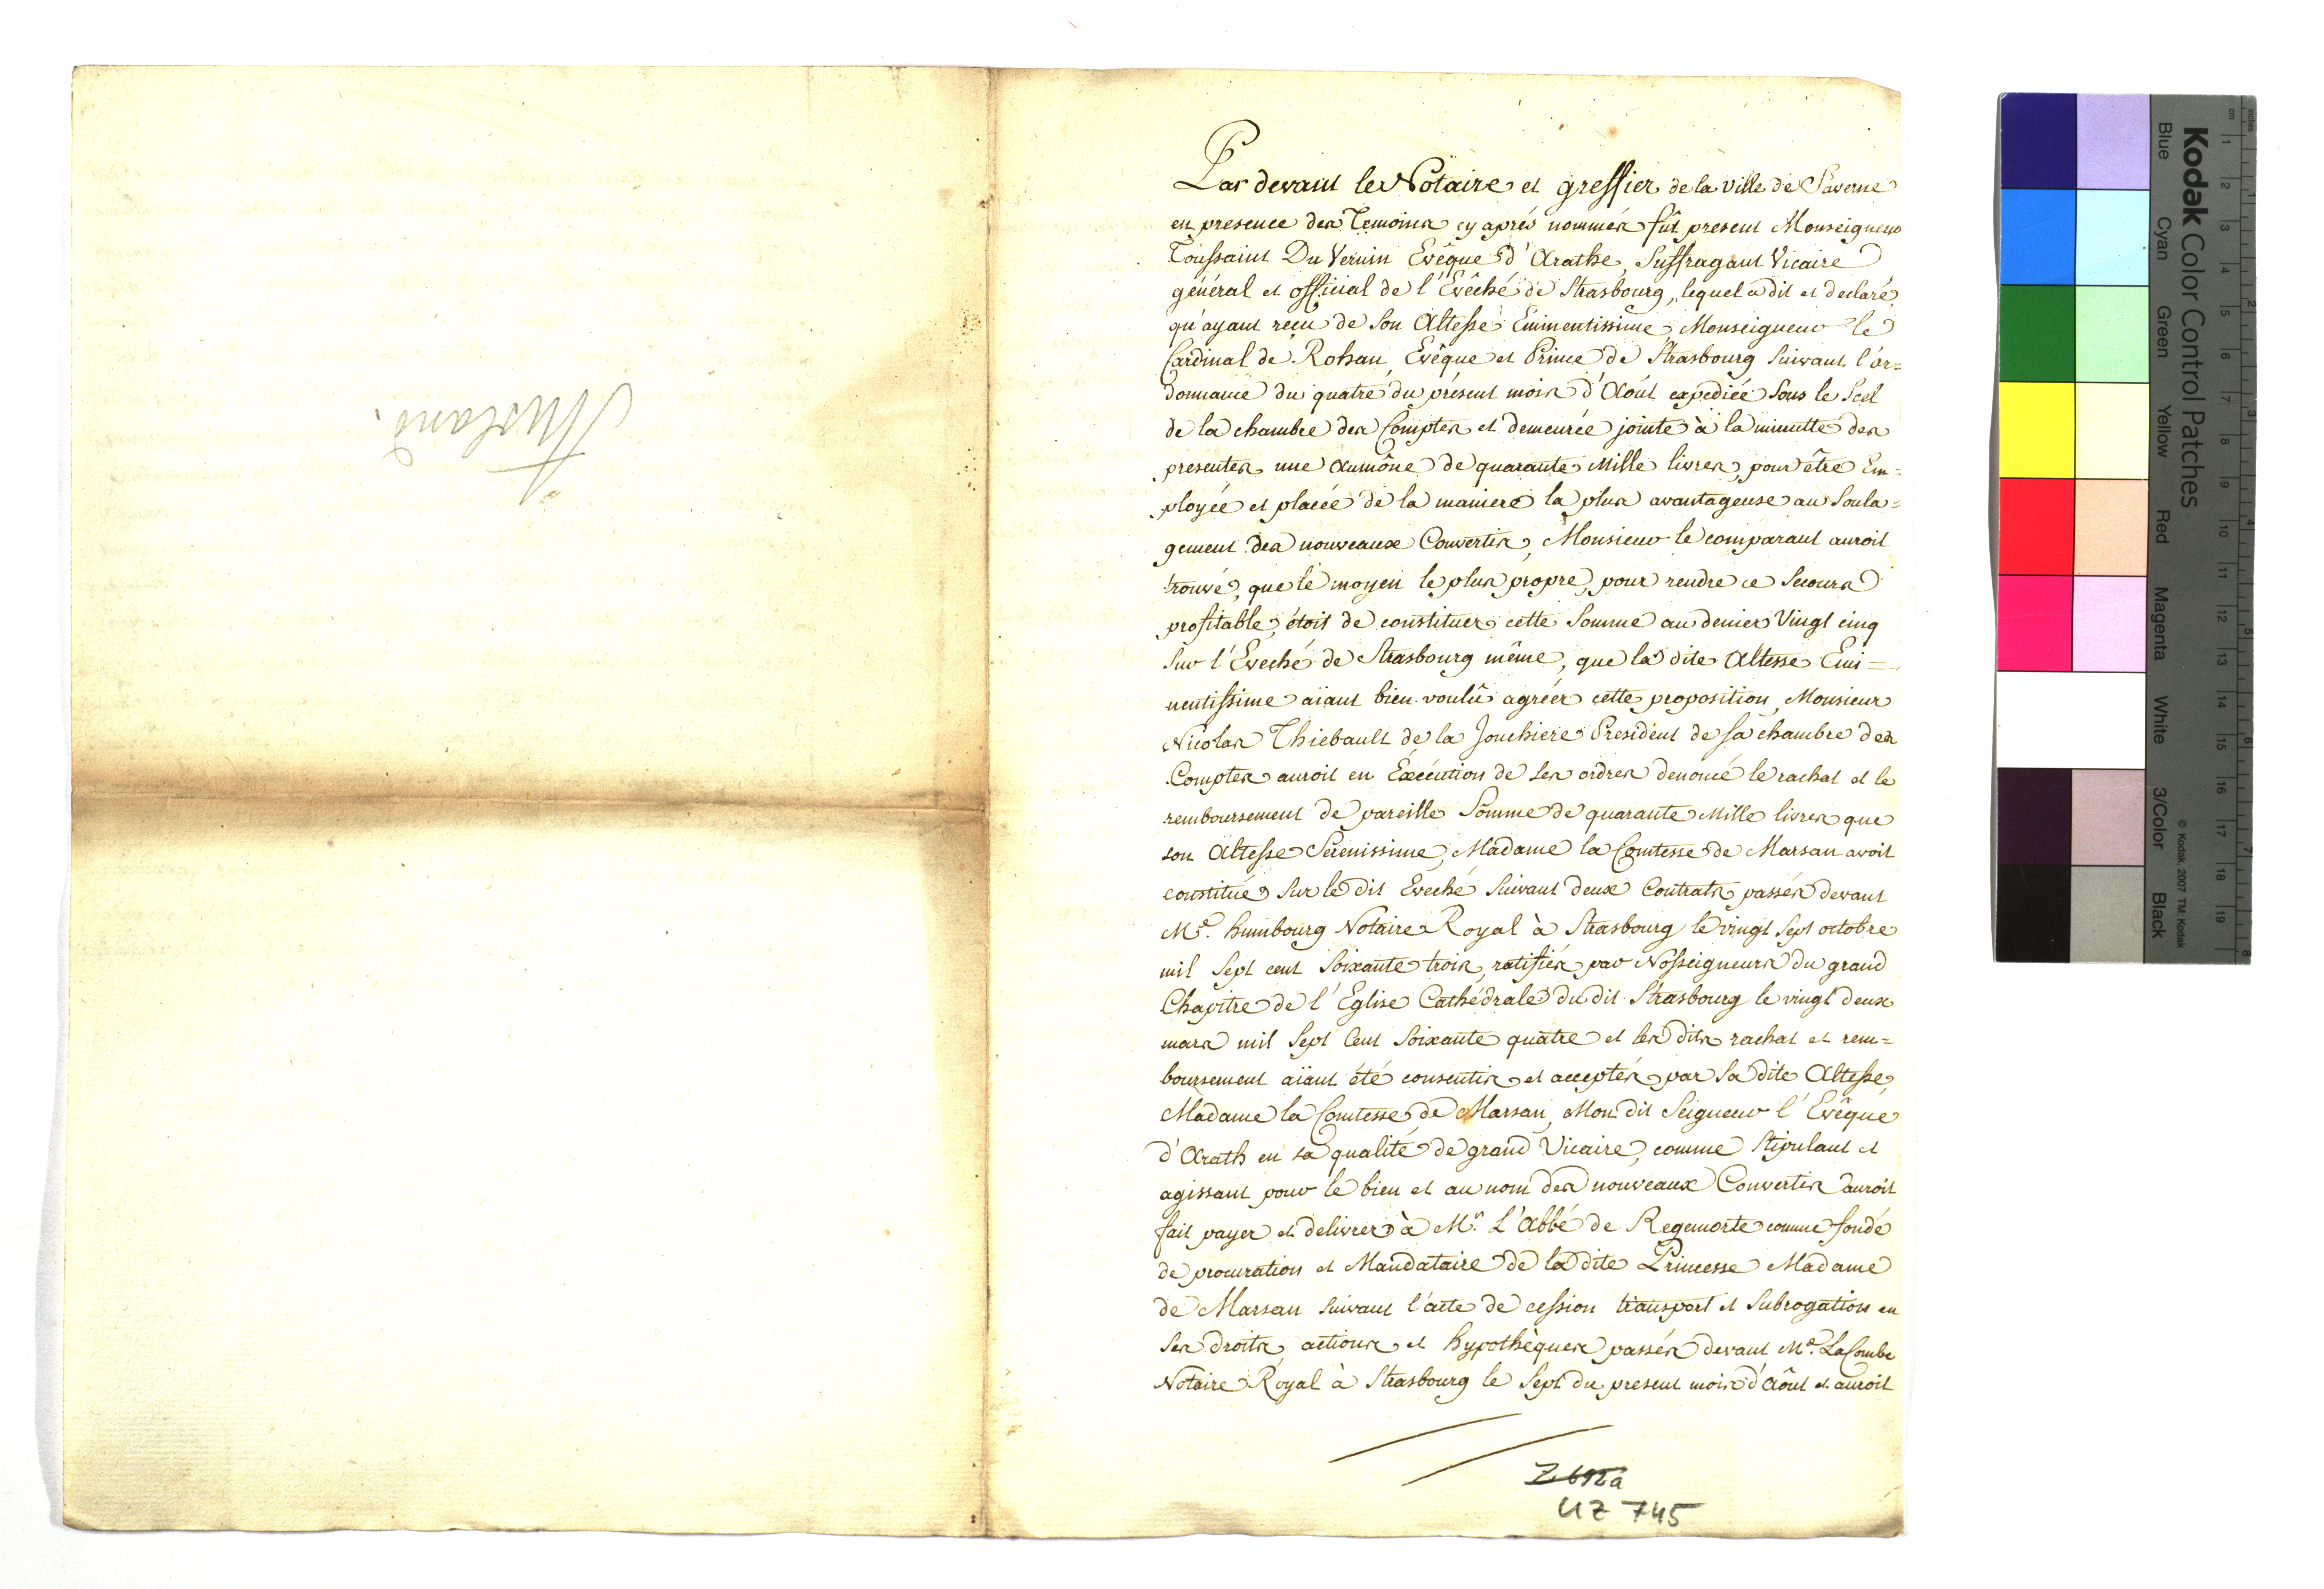 Par devant le Notaire et greffier de la ville de Saverne
en presence des Temoins cy aprés nommés fût present Monseigneur
Toussaint Du Vernin Evêque d'Arathe, Suffragant Vicaire
général et official de l'Evêché de Strasbourg, lequel a dit et declaré,
qu'ayant reçu de Son Altesse Eminentissime, Monseigneur le
Cardinal de Rohan, Evêque et Prince de Strasbourg suivant l'or=
donnance du quatre du présent mois d'Aoút expediée sous le Scel
de la chambre des Comptes et demeurée jointe à la minutte des
presentes, une aumône de quarante Mille livres, pour être Em=
ployée et placée de la maniere la plus avantageuse au Soula=
gement des nouveaux Convertis, Monsieur le comparant auroit
trouvé, que le moyen le plus propre, pour rendre ce Secours
profitable, étoit de constituer cette Somme au denier Vingt cinq
sur l'Eveché de Strasbourg même, que la dite Altesse Emi=
nentissime aïant bien voulû agréer cette proposition, Monsieur
Nicolas Thiebault de la Jonchiere President de sa chambre des
Comptes auroit en Exécution de ses ordres denoncé le rachat et le
remboursement de pareille Somme de quarante Mille livres que
son Altesse Sérénissime, Madame la Comtesse de Marsan avoit
constitué sur le dit Eveché suivant deux Contrats passés devant
Me. humbourg Notaire Royal à Strasbourg le vingt Sept octobre
mil Sept cent Soixante trois, ratifiés par Nosseigneurs du grand
Chapitre de l'Eglise Cathédrale du dit Strasbourg le vingt deux
mars mil Sept Cent Soixante quatre et les dits rachat et rem=
boursement aïant été consentis et acceptés par Sa dite Altesse,
Madame la Comtesse de Marsan, Mon dit Seigneur l'Evêque
d'Arath en sa qualité de grand Vicaire, comme Stipulant et
agissant pour le bien et au nom des nouveaux Convertis auroit
fait payer et delivrer à Mr. L'Abbé de Regemorte comme fondé
de procuration et Mandataire de la dite Princesse Madame
de Marsan suivant l'acte de cession transport et Subrogation en
ses droits, actions et hypothèques passés devant Me. LaCombe
Notaire Royal à Strasbourg le Sept du present mois d'Aôut et auroit
Z 692a
UZ 745
Kodak Color Control Patches
© Kodak, 2007 TM: Kodak
Blue Cyan Green Yellow Red Magenta White 3/Color Black
cm 1 2 3 4 5 6 7 8 9 10 11 12 13 14 15 16 17 18 19
inches 1 2 3 4 5 6 7 8